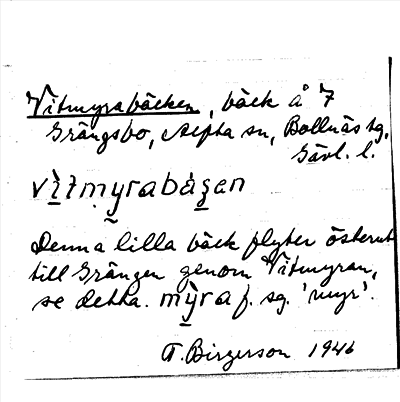 Vitmyrabäcken, bäck å 7
Grängsbo, Alfta sn, Bollnäs tg,
Gävl. l.
vìtmyrabäʒan
Denna lilla bäck flyter österut
till Grängen genom Vitmyran,
se detta. mỳra f. sg. 'myr'.
T. Birgerson 1946